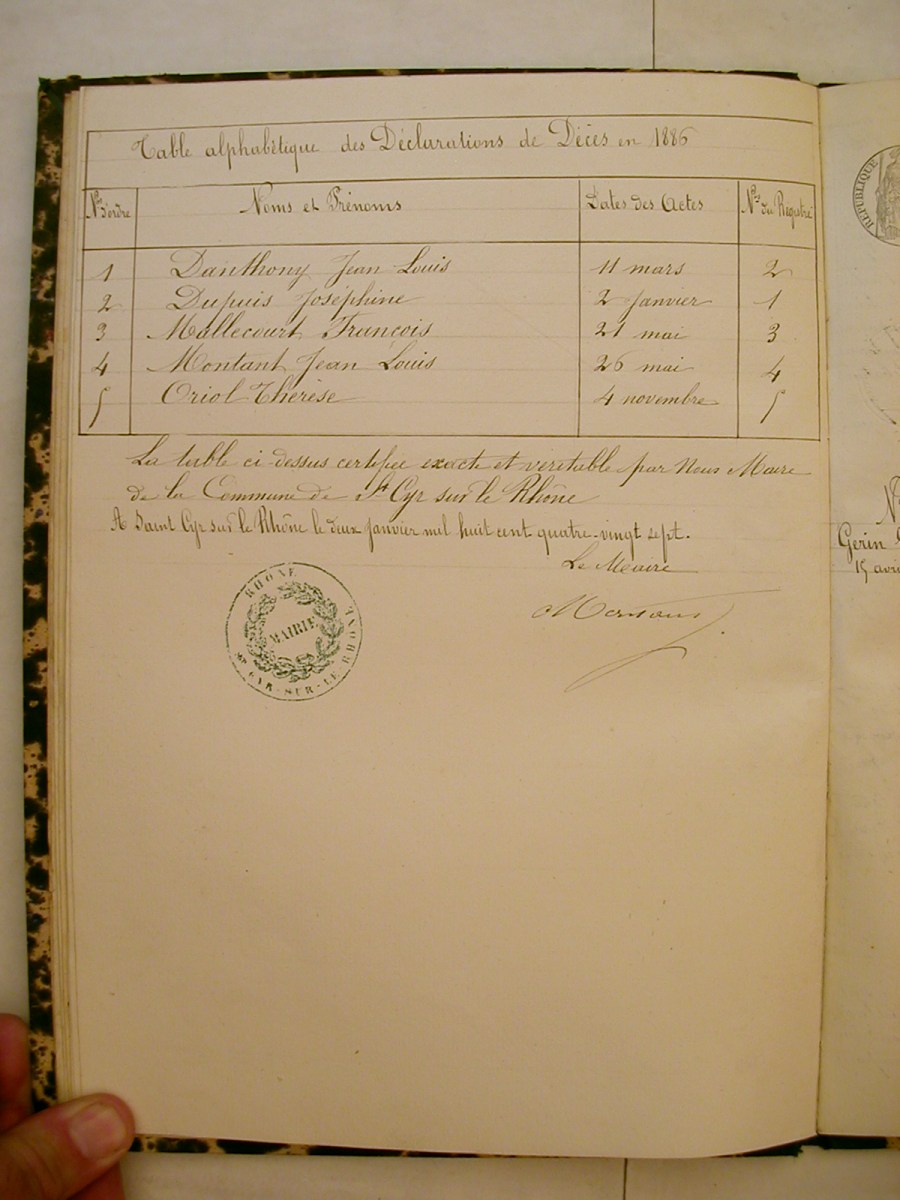 Table alphabétique des Déclarations de Décès en 1886
Nos d'ordre Noms et Prénoms Dates des Actes Nos du Registre
1 Danthony Jean Louis 11 mars 2
2 Dupuis Joséphine 2 Janvier 1
3 Mallecourt François 21 mai 3
4 Montant Jean Louis 26 mai 4
5 Oriol Thérèse 4 novembre 5
La table ci-dessus certifiée exacte et véritable par Nous Maire
de la Commune de St Cyr sur le Rhône
A Saint Cyr sur le Rhône le deux janvier mil huit cent quatre-vingt sept.
Le Maire
RHÔNE
MAIRIE
ST CYR-SUR-LE-RHONE
REPUBLIQUE
Gerin
15 avri